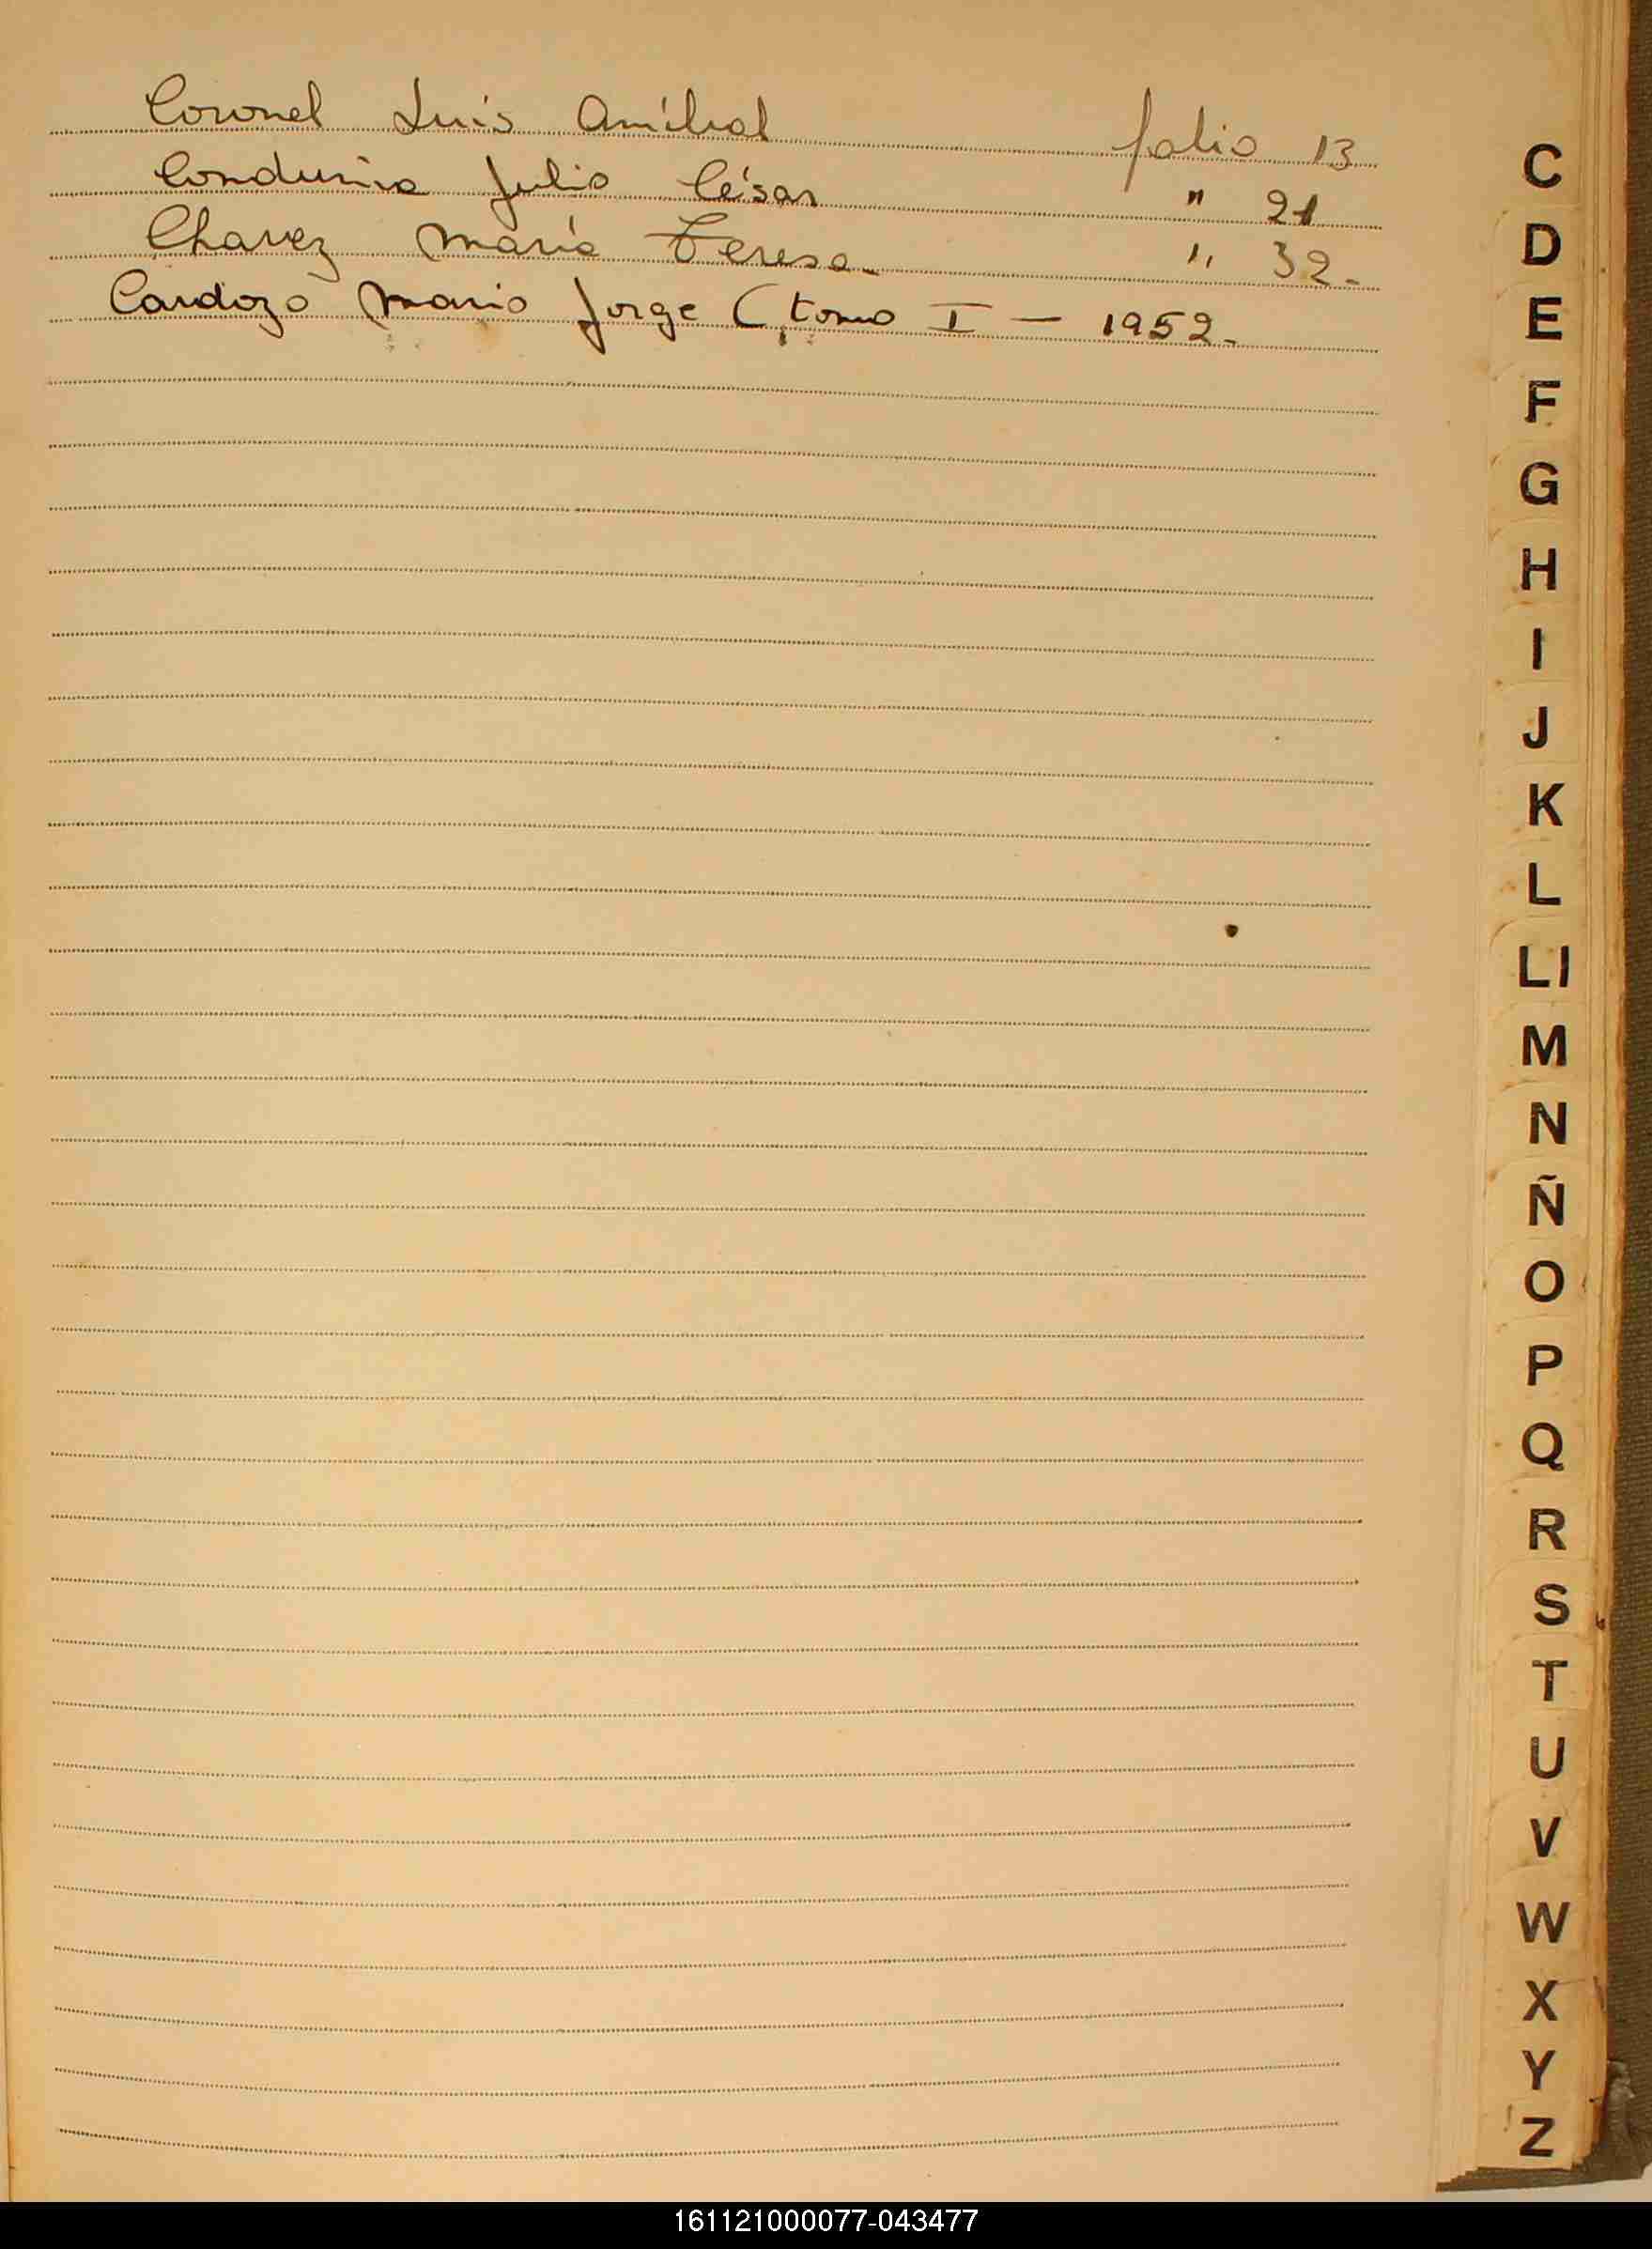 Coronel Luis Aníbal folio 13
Julio César " 21
Chavez María Teresa " 32.
Cardozo Mario Jorge (tomo I - 1952.
C
D
E
F
G
H
I
J
K
L
Ll
M
N
Ñ
O
P
Q
R
S
T
U
V
W
X
Y
Z
161121000077-043477